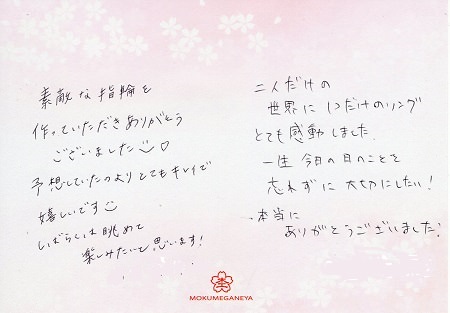 素敵な指輪を
作っていただきありがとう
ございました♡
予想していたのよりとてもキレイで
嬉しいです
しばらくは眺めて
楽しみたいと思います!
二人だけの
世界に1つだけのリング
とても感動しました
一生 今日の日のことを
忘れずに 大切にしたい!
本当に
ありがとうございました!
MOKUMEGANEYA